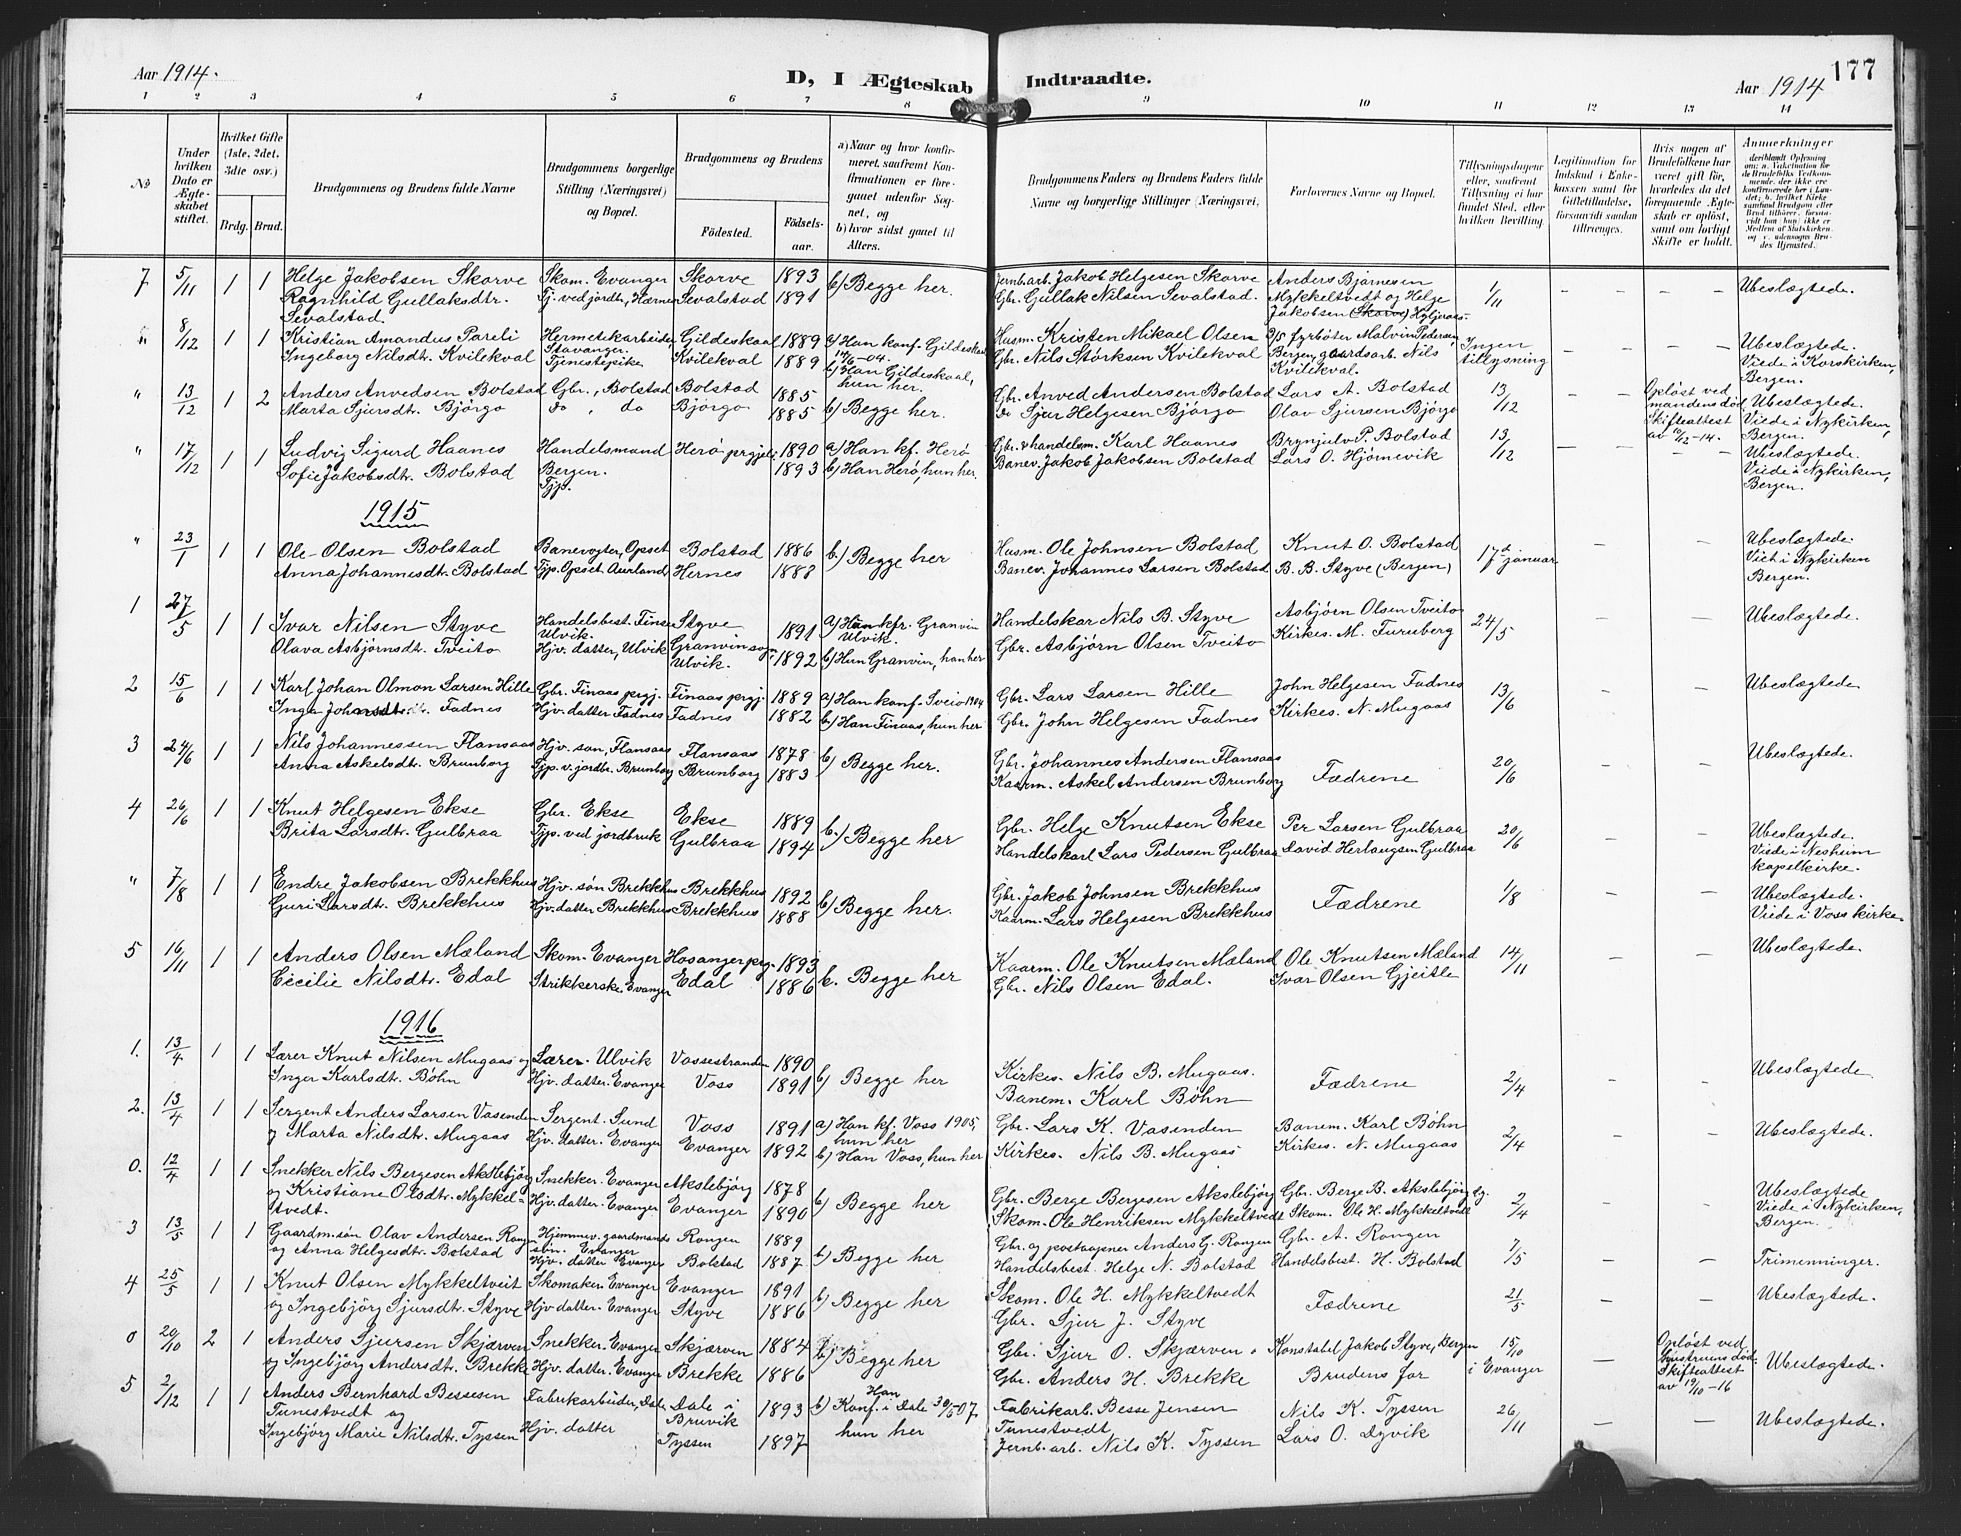 Aar 1914.
D, I Ægteskab Indtraadte.
Aar 1914
177
1 2 3 4 5 6 7 8 9 10 11 12 13 14
No
Under hvilken Dato er Ægteskabet stiftet.
Hvilket Gifte (1ste, 2det, 3die osv.)
Brdg. Brud.
Brudgommens og Brudens fulde Navne
Brudgommens borgerlige Stilling (Næringsvei) og Bopæl.
Brudgommens og Brudens
Fødested. Fødselsaar.
a) Naar og hvor konfirmeret, saafremt Konfirmationen er foregaaet udenfor Sognet, og
b) hvor sidst gaaet til Alters.
Brudgommens Faders og Brudens Faders fulde Navne og borgerlige Stillinger (Næringsvei.
Forlovernes Navne og Bopæl.
Tillysningsdagene eller, saafremt Tillysning ei har fundet Sted, efter hvilken Bevilling.
Legitimation for Indskud i Enkekassen samt for Giftetilladelse, forsaavidt saadan tiltrænges.
Hvis nogen af Brudefolkene har været gift før, hvorledes da det foregaaende Ægteskab er opløst, samt om lovligt Skifte er holdt.
Anmærkninger
7 5/11 1 1 Helge Jakobsen Skorve Skom. Evanger Skorve 1893 b) Begge her. Jernb.arb. Jakob Helgesen Skorve Anders Bjørnesen 1/11 – – – Ubeslægtede.
Ragnhild Gullaksdtr. Sevalstad. Tj. ved jordbr., Hernes Sevalstad 1891 Gbr. Gullak Nilsen Sevalstad. Mykkeltvedt og Helge Jakobsen (Skorve)
" 8/12 1 1 Kristian Amandus Pareli Hermetikarbeider, Stavanger. Gildeskaal 1889 a) Han konf. Gildeskaal 14/6-04. Husm. Kristen Mikael Olsen D/S fyrbøter Malvin Pedersen, Ingen tillysning – – – Ubeslægtede.
Ingeborg Nilsdtr. Kvilekval Tjenestepike Kvilekval 1889 b) Han Gildeskaal, hun her. Gbr. Nils Størksen Kvilekval Bergen, gaardsarb. Nils Kvilekval. Viede i Korskirken, Bergen.
" 13/12 1 2 Anders Anvedsen Bolstad Gbr., Bolstad Bolstad 1885 b) Begge her. Gbr. Anved Andersen Bolstad Lars A. Bolstad 13/12 – Opløst ved mandens død Ubeslægtede.
Marta Sjursdtr. Bjørgo do, do Bjørgo 1885 Do Sjur Helgesen Bjørgo Olav Sjursen Bjørgo Skifteattest av 10/12-14. Viede i Nykirken, Bergen.
" 17/12 1 1 Ludvig Sigurd Haanes Handelsmand Bergen. Herø prgjeld 1890 a) Han kf. Herø Gbr. & handelsm. Karl Haanes Brynjulv P. Bolstad 13/12 – – Ubeslægtede.
Sofie Jakobsdtr. Bolstad Tjp. 1893 b) Han Herø, hun her. Banev. Jakob Jakobsen Bolstad Lars O. Hjørnevik Viede i Nykirken, Bergen.
1915
" 23/1 1 1 Ole Olsen Bolstad Banevogter, Opset Bolstad 1886 b.) Begge her Husm. Ole Johnsen Bolstad Knut O. Bolstad 17de januar – – Ubeslægtede.
Anna Johannesdtr. Bolstad Tjp. Opset. Aurland, Hernes 1888 Banev. Johannes Larsen Bolstad B. B. Styve (Bergen) Viet i Nykirken Bergen.
1 27/5 1 1 Ivar Nilsen Styve Handelsbest. Finse Ulvik. Styve 1891 a) Han kfr. Granvin Ulvik Handelskar Nils B. Styve Asbjørn Olsen Tveito 24/5 – – Ubeslægtede.
Olava Asbjørnsdt. Tveito Hjv. datter, Ulvik Granvin sogn, Ulvik. 1892 b) Hun Granvin, han her Gbr. Asbjørn Olsen Tveito Kirkes. M. Furuberg
2 15/6 1 1 Karl Johan Olmon Larsen Hille Gbr. Finaas prgj. Finaas prgj. 1889 a) Han konf. Sveio 1904 Gbr. Lars Larsen Hille John Helgesen Fadnes 13/6 – – Ubeslægtede
Inga Johnsdtr. Fadnes Hjv. datter Fadnes Fadnes 1882 b) Han Finaas, hun her Gbr. John Helgesen Fadnes Kirkes. N. Mugaas
3 24/6 1 1 Nils Johannessen Flansaas Hjv. søn, Flansaas Flansaas 1878 b) Begge her. Gbr. Johannes Andersen Flansaas Fædrene 20/6 – – Ubeslægtede.
Anna Askelsdtr. Brunborg Tjp. v. jordbr. Brunborg Brunborg 1883 Kaarm. Askel Andersen Brunborg
4 26/6 1 1 Knut Helgesen Ekse Gbr. Ekse Ekse 1889 b.) Begge her Gbr. Helge Knutsen Ekse Per Larsen Gulbraa 20/6 – – Ubeslægtede.
Brita Larsdtr. Gulbraa Tjp. ved jordbruk Gulbraa 1894 Handelskarl Lars Pedersen Gulbraa David Herlaugsen Gulbraa Viede i Nesheim kapelkirke.
" 7/8 1 1 Endre Jakobsen Brekkhus Hjv. søn Brekkhus Brekkhus 1892 b) Begge her. Gbr. Jakob Johnsen Brekkhus Fædrene 1/8 – – Ubeslægtede.
Guri Larsdtr. Brekkhus Hjv. datter Brekkhus Brekkhus 1888 Kaarm. Lars Helgesen Brekkhus Viede i Voss kirke.
5 16/11 1 1 Anders Olsen Mæland Skom. Evanger Hosanger prg. 1893 b. Begge her Kaarm. Ole Knutsen Mæland Ole Knutsen Mæland 14/11 – – Ubeslægtede.
Cecilie Nilsdtr. Edal Strikkerske. Evanger Edal 1886 Gbr. Nils Olsen Edal. Ivar Olsen Gjeitle
1916
1. 13/4 1 1 Lærer Knut Nilsen Mugaas og Lærer. Ulvik Vossestranden 1890 b) Begge her Kirkes. Nils B. Mugaas. Fædrene 2/4 – – Ubeslægtede.
Inger Karlsdt. Bøhn Hjv. datter. Evanger Voss 1891 Banem. Karl Bøhn
2. 13/4 1 1 Sergent Anders Larsen Vasenden Sergent. Sund Voss 1891 a) Han kf. Voss 1905, hun her Gbr. Lars K. Vasenden Banem. Karl Bøhn 2/4 – – Ubeslægtede.
og Marta Nilsdtr. Mugaas Hjv. datter. Evanger Evanger 1892 b) Han Voss, hun her Kirkes. Nils B. Mugaas Kirkes. N. Mugaas
0. 12/4 1 1 Snekker Nils Bergesen Akslebjørg Snekker. Evanger Akslebjørg 1878 b) Begge her Gbr. Berge Bergesen Akslebjørg Gbr. Berge B. Akslebjørg og 2/4 – – Ubeslægtede
og Kristiane Olsdtr. Mykkeltvedt. Hjv. datter. Evanger Evanger 1890 Skom. Ole Henriksen Mykkeltvedt Skom. Ole H. Mykkeltvedt Viede i Nykirken, Bergen.
3 13/5 1 1 Gaardm.søn Olav Andersen Rongen Hjemmev. gaardmandssøn. Evanger Rongen 1889 b) Begge her Gbr. og postaapner Anders G. Rongen Gbr. A. Rongen 7/5 – – Trimenninger.
og Anna Helgesdt. Bolstad Hjv. datter Evanger Bolstad 1887 Handelsbest. Helge N. Bolstad Handelsbest. H. Bolstad
4 25/5 1 1 Knut Olsen Mykkeltveit Skomaker. Evanger Evanger 1891 b) Begge her Skom. Ole H. Mykkeltvedt Fædrene 21/5 – – Ubeslægtede.
og Ingebjørg Sjursdtr. Styve Hjv datter. Evanger Styve 1886 Gbr. Sjur J. Styve
0 20/10 2 1 Anders Sjursen Skjærven Snekker. Evanger Skjærven 1884 b) Begge her Gbr. Sjur O. Skjærven Konstabel Jakob Styve, Bergen 15/10 i Evanger – Opløst ved hustruens død. Skifteattest av 19/10-16 Ubeslægtede.
og Ingebjørg Andersdt. Brekke Hjv. datter. Evanger Brekke 1886 Gbr. Anders H. Brekke Brudens far
5 2/12 1 1 Anders Bernhard Bessesen Tunestvedt og Fabrikarbeider, Dale Dale i Bruvik 1893 b) Han Konf. i Dale 30/5 07. hun her Fabrikarb. Besse Jensen Tunestvedt Nils K. Tyssen 26/11 – – Ubeslægtede.
Ingebjørg Marie Nilsdt. Tyssen Hjv. datter Tyssen 1897 Jernb.arb. Nils K. Tyssen Lars O. Dyvik